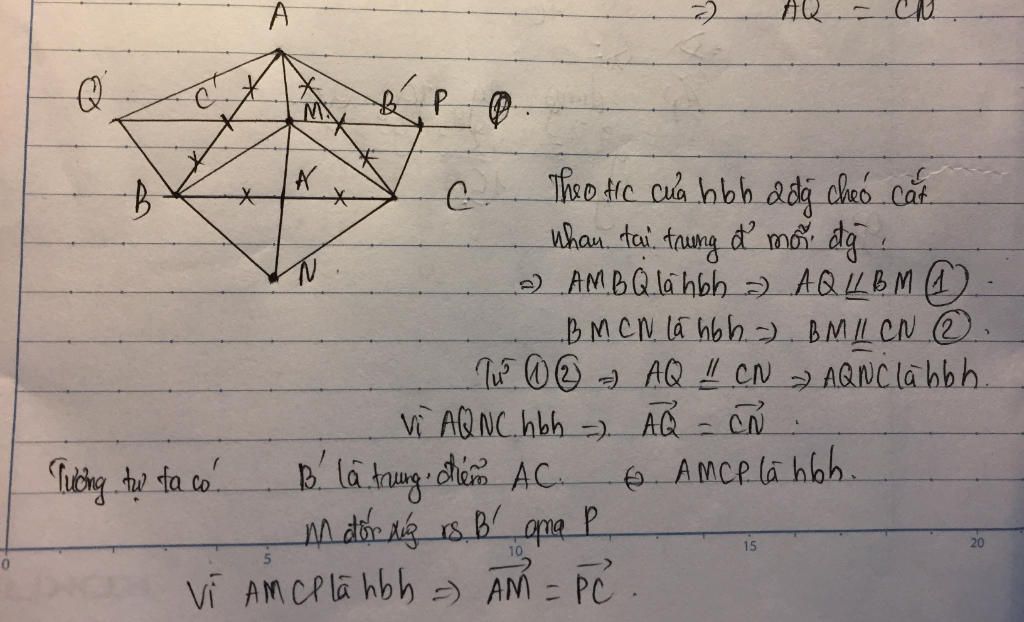 ⇒ AQ = CN.
A
Q C' M. B' P
B A' C
N
Theo t/c của hbh 2 đg chéo cắt
nhau tại trung đ' mỗi đg.
⇒ AMBQ là hbh ⇒ AQ // BM ①.
BMCN là hbh ⇒ BM // CN ②.
Từ ① ② ⇒ AQ // CN ⇒ AQNC là hbh.
Vì AQNC hbh ⇒ AQ = CN.
Tương tự ta có B' là trung điểm AC. ⇔ AMCP là hbh.
M đối xứg vs B' qua P
0 5 10 15 20
Vì AMCP là hbh ⇒ AM = PC.